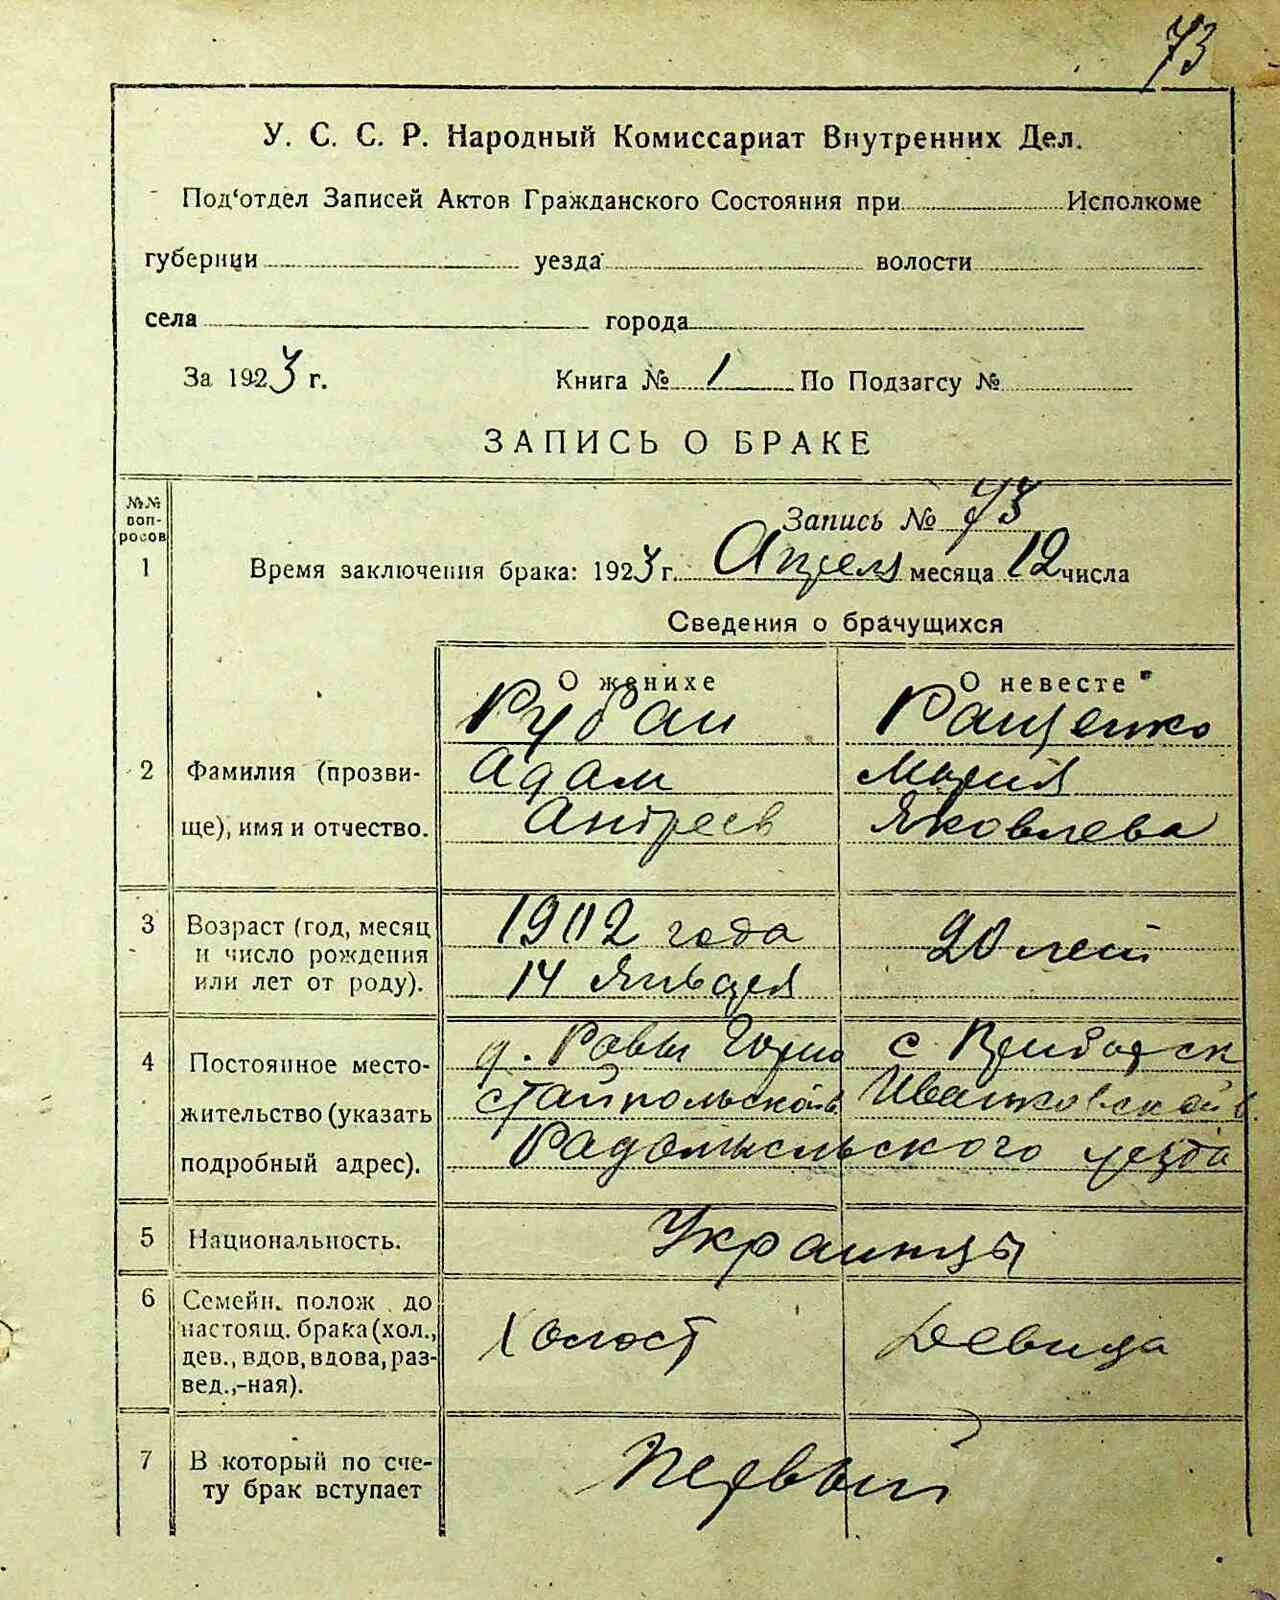 73
У. С. С. Р. Народный Комиссариат Внутренних Дел.
Под‘отдел Записей Актов Гражданского Состояния при Исполкоме
губернии уезда волости
села города
За 1923 г. Книга № 1 По Подзагсу №
ЗАПИСЬ О БРАКЕ
№№ воп-
росов
Запись № 73
1 Время заключения брака: 1923 г. Апреля месяца 12 числа
Сведения о брачущихся
О женихе О невесте
Рубан Ращенко
2 Фамилия (прозви- Адам Мария
ще), имя и отчество. Андреев Яковлева
3 Возраст (год, месяц 1902 года 20 лет
и число рождения
или лет от роду). 14 Января
д. с
4 Постоянное место-
жительство (указать Иванковской в.
подробный адрес). Радомысльского уезда
5 Национальность. Украинцы
6 Семейн. полож до
настоящ. брака (хол., Холост Девица
дев., вдов, вдова, раз-
вед.,-ная).
7 В который по сче- Первый
ту брак вступает